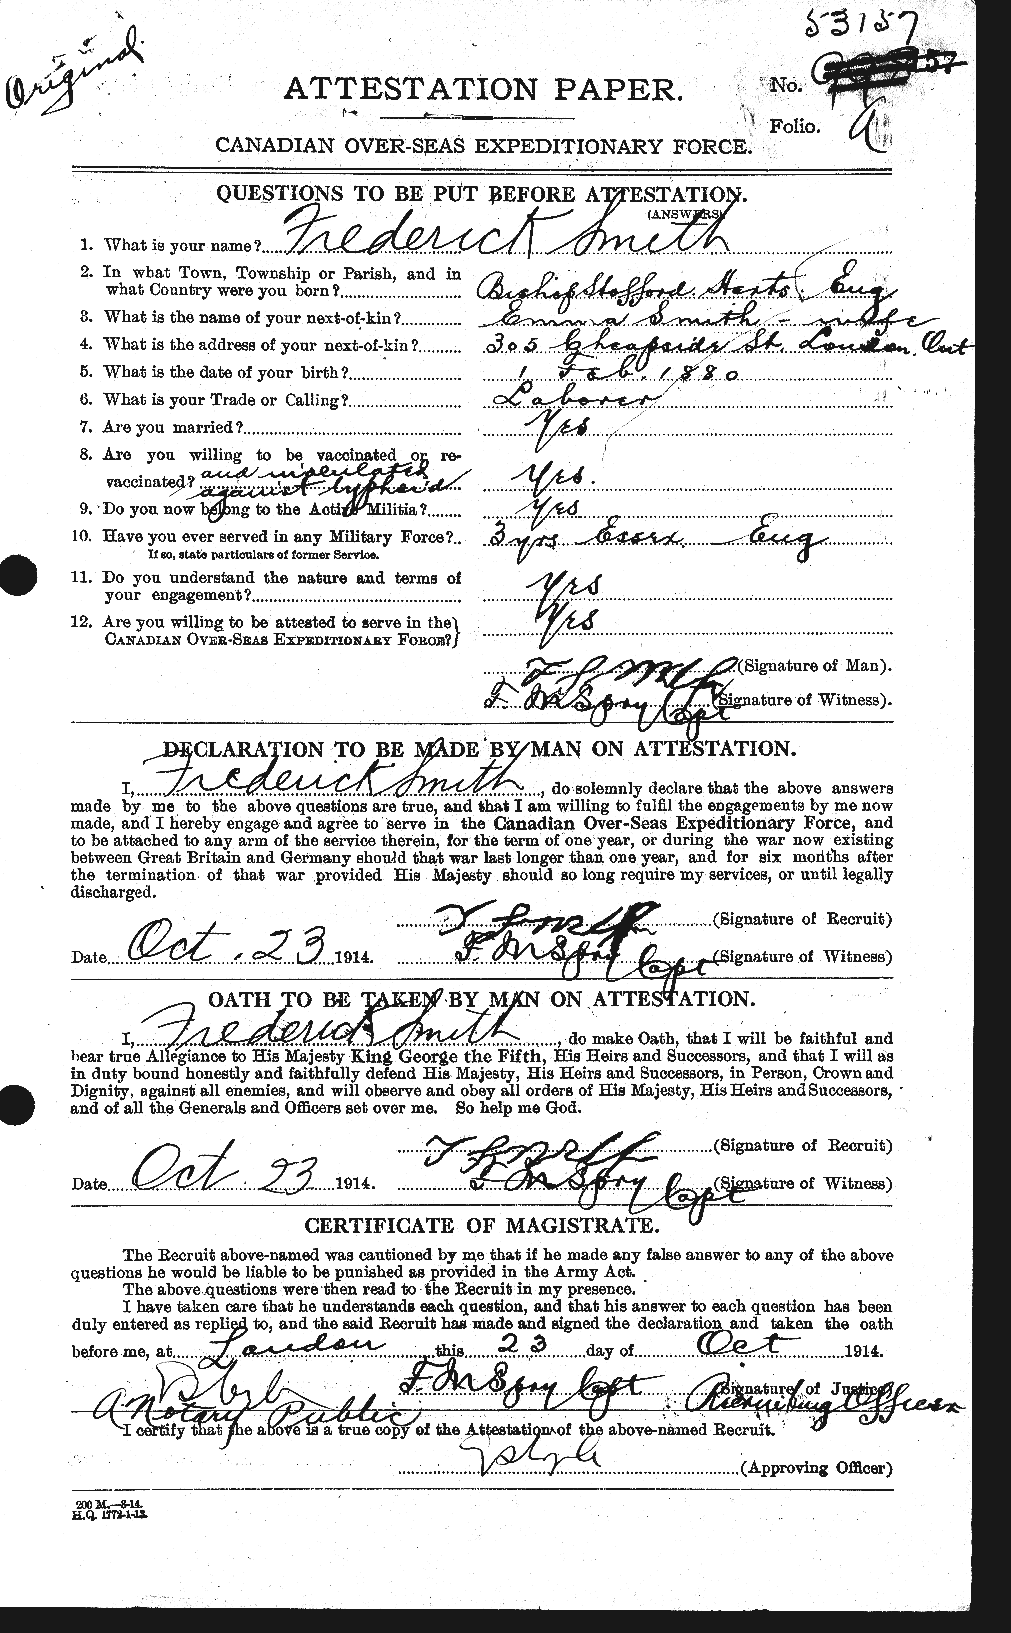 53157
Original
ATTESTATION PAPER.
No. 57
Folio. A
CANADIAN OVER-SEAS EXPEDITIONARY FORCE.
QUESTIONS TO BE PUT BEFORE ATTESTATION.
(ANSWERS)
1. What is your name? Frederick Smith
2. In what Town, Township or Parish, and in
what Country were you born? Bishop Stofford Harts Eng
3. What is the name of your next-of-kin? Emma Smith - wife
4. What is the address of your next-of-kin? 305 Cheapside St. London. Ont
5. What is the date of your birth? 1 Feb. 1880
6. What is your Trade or Calling? Laborer
7. Are you married? Yes
8. Are you willing to be vaccinated or re-
vaccinated? and inoculated
against typhoid Yes.
9. Do you now belong to the Active Militia? Yes
10. Have you ever served in any Military Force? 3 yrs Essex. Eng
If so, state particulars of former Service.
11. Do you understand the nature and terms of
your engagement? Yes
12. Are you willing to be attested to serve in the
CANADIAN OVER-SEAS EXPEDITIONARY FORCE? Yes
F Smith (Signature of Man).
F. M Spry Capt (Signature of Witness).
DECLARATION TO BE MADE BY MAN ON ATTESTATION.
I, Frederick Smith, do solemnly declare that the above answers
made by me to the above questions are true, and that I am willing to fulfil the engagements by me now
made, and I hereby engage and agree to serve in the Canadian Over-Seas Expeditionary Force, and
to be attached to any arm of the service therein, for the term of one year, or during the war now existing
between Great Britain and Germany should that war last longer than one year, and for six months after
the termination of that war provided His Majesty should so long require my services, or until legally
discharged.
F Smith (Signature of Recruit)
Date Oct. 23 1914. F. M Spry Capt (Signature of Witness)
OATH TO BE TAKEN BY MAN ON ATTESTATION.
I, Frederick Smith, do make Oath, that I will be faithful and
bear true Allegiance to His Majesty King George the Fifth, His Heirs and Successors, and that I will as
in duty bound honestly and faithfully defend His Majesty, His Heirs and Successors, in Person, Crown and
Dignity, against all enemies, and will observe and obey all orders of His Majesty, His Heirs and Successors,
and of all the Generals and Officers set over me. So help me God.
F Smith (Signature of Recruit)
Date Oct. 23 1914. F. M Spry Capt (Signature of Witness)
CERTIFICATE OF MAGISTRATE.
The Recruit above-named was cautioned by me that if he made any false answer to any of the above
questions he would be liable to be punished as provided in the Army Act.
The above questions were then read to the Recruit in my presence.
I have taken care that he understands each question, and that his answer to each question has been
duly entered as replied to, and the said Recruit has made and signed the declaration and taken the oath
before me, at London this 23 day of Oct 1914.
F. M Spry Capt (Signature of Justice)
A Notary Public Recruiting Officer
I certify that the above is a true copy of the Attestation of the above-named Recruit.
(Approving Officer)
200 M.—8-14.
H.Q. 1772-1-13.